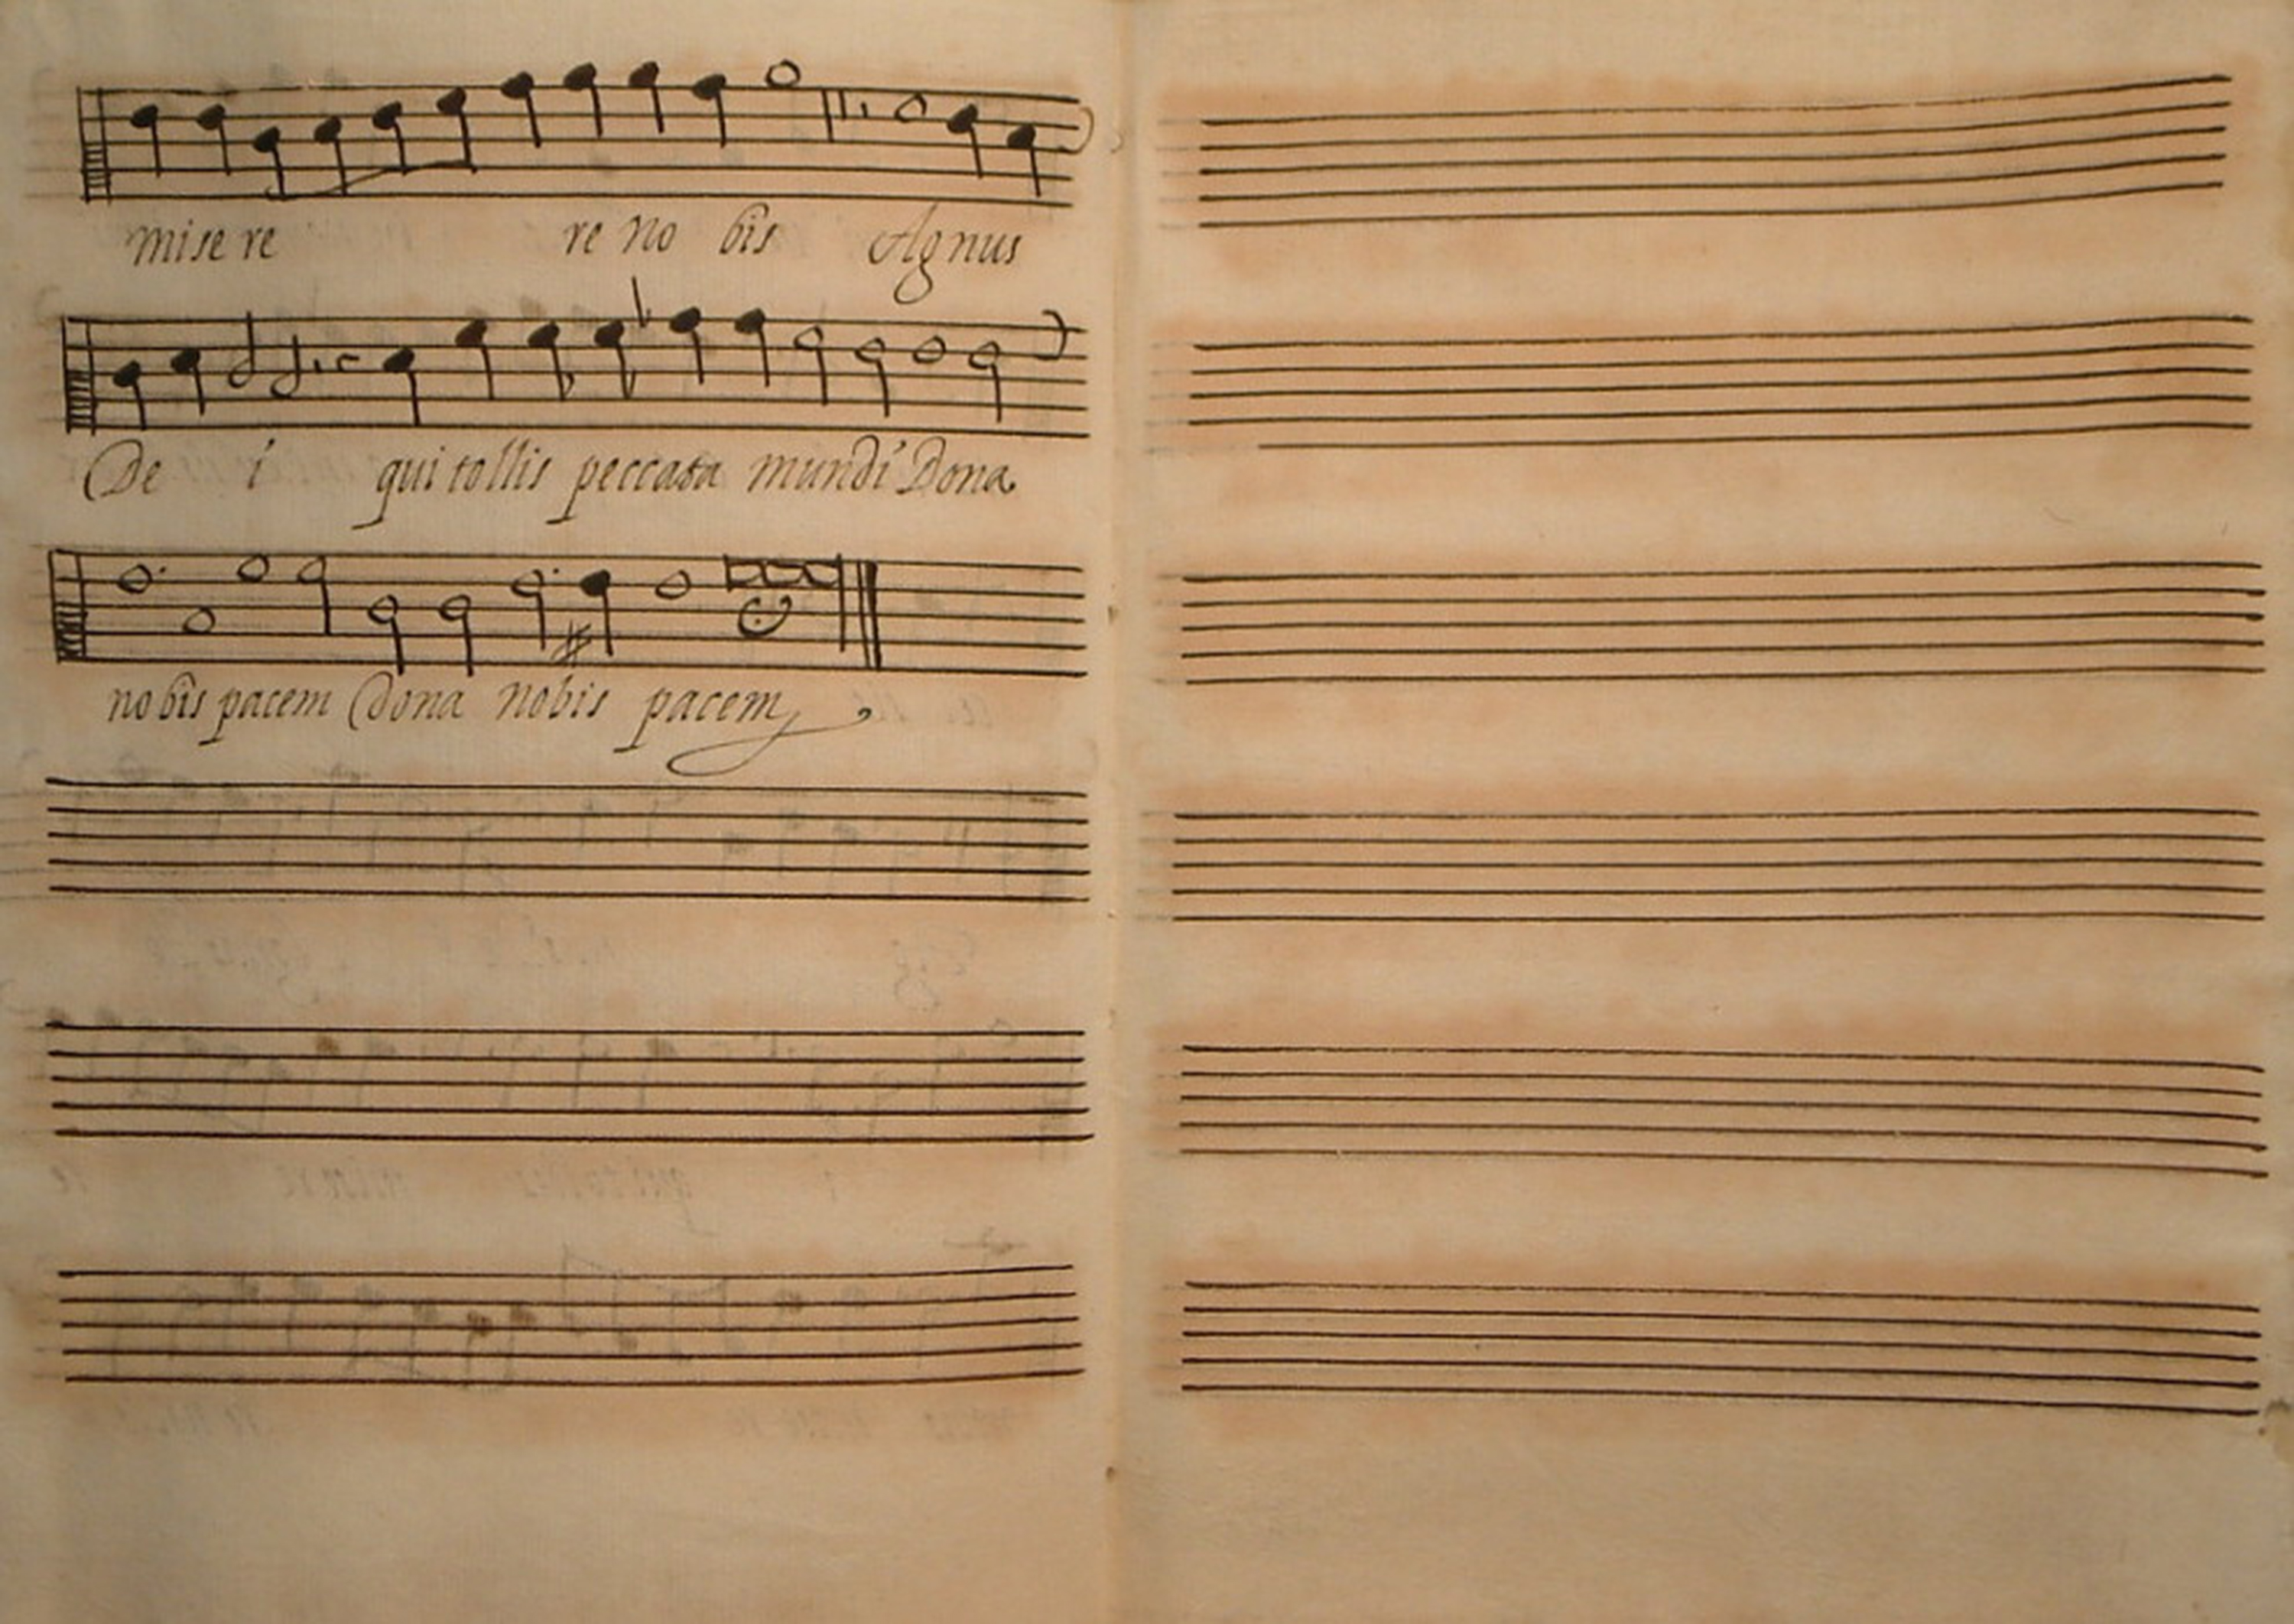 mise re re no bis Agnus
De i qui tollis peccata mundi Dona
nobis pacem Dona nobis pacem